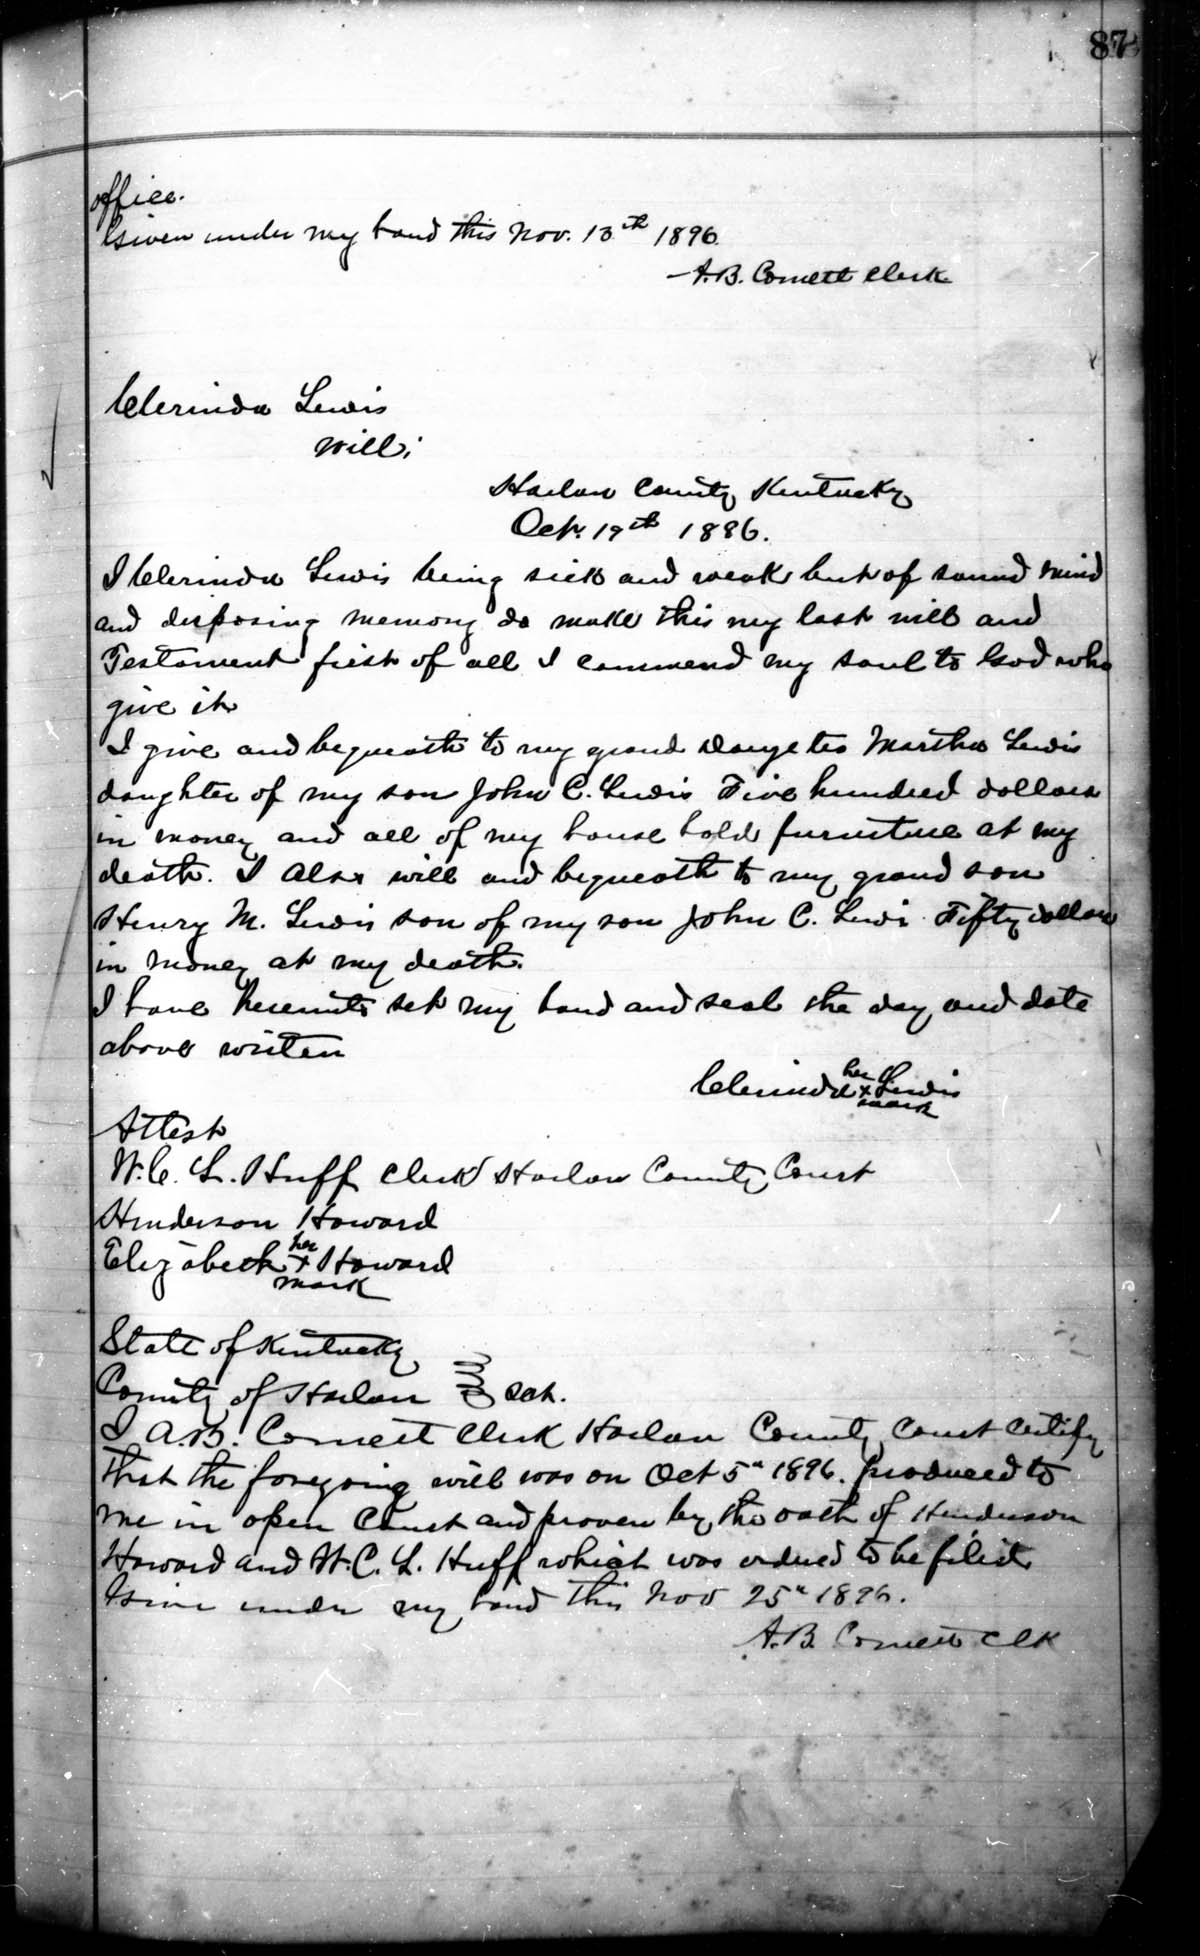 87
office.
Given under my hand this Nov. 13th 1896.
A.B. Cornett Clerk
Clerinda Lewis
Will;
Harlan County Kentucky
Oct. 19th 1886.
I Clerinda Lewis being sick and weak but of sound mind
and disposing memory do make this my last will and
Testament first of all I commend my soul to God who
give it
I give and bequeath to my grand Daughter Martha Lewis
daughter of my son John C. Lewis Five hundred dollars
in money and all of my house hold furniture at my
death. I also will and bequeath to my grand son
Henry M. Lewis son of my son John C. Lewi Fifty dollars
in money at my death.
I have hereunto set my hand and seal the day and date
above writen
Clerinda her x mark Lewis
Attest
W.C. L. Huff Clerk Harlan County Court
Henderson Howard
Elizabeth her x mark Howard
State of Kentucky
County of Harlan Sct.
I A.B. Cornett Clerk Harlan County Court certify
that the foregoing will was on Oct 5th 1896. produced to
me in open Court and proven by the oath of Henderson
Howard and W.C. L. Huff which was ordered to be filed
Given under my hand this Nov 25th 1896.
A.B. Cornett Clk